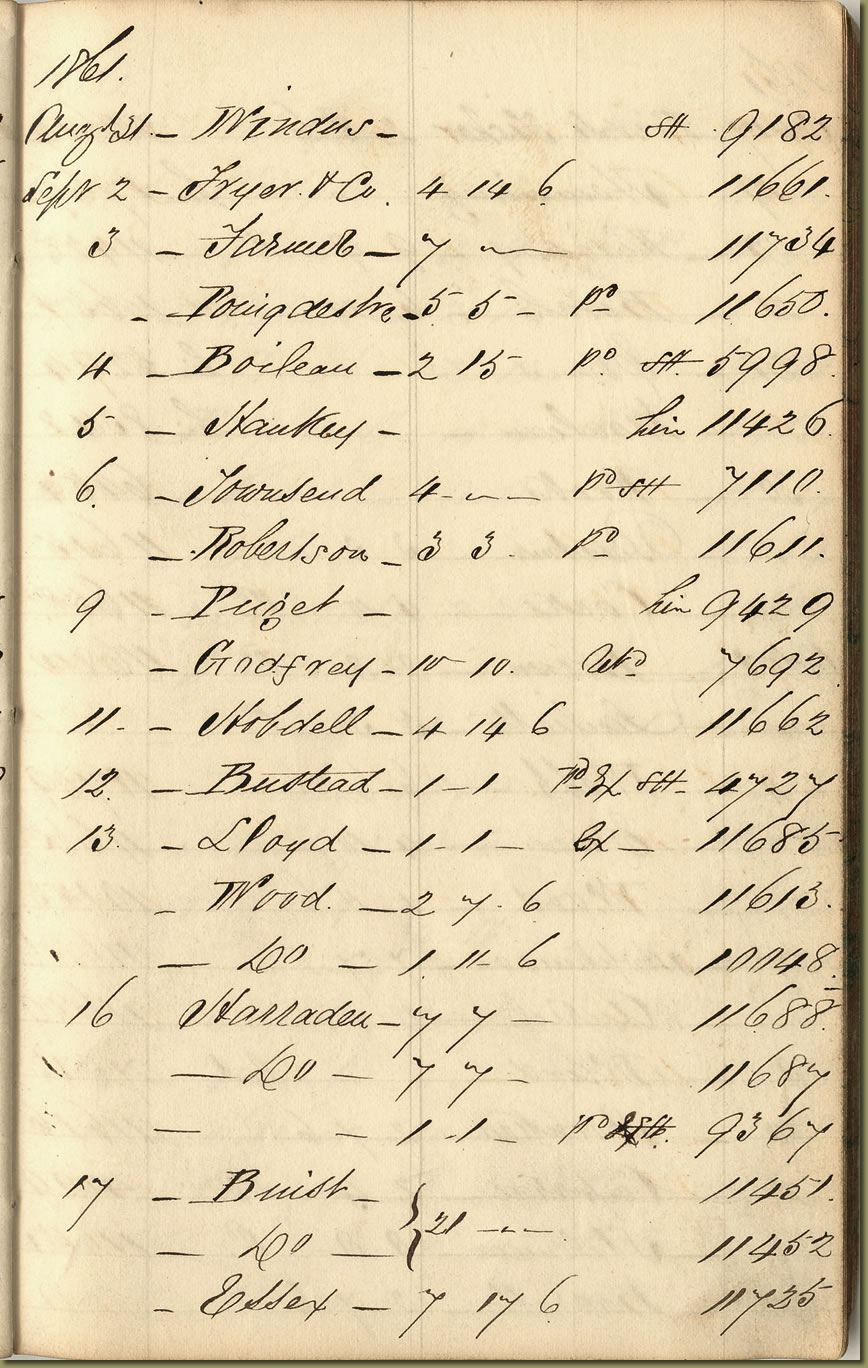 1861.
Augst 31. – Windus – SH 9182
Sept 2 – Fryer & Co. 4 14 6 11661.
3 – Farmer – 7 – 11734
– Poingdestre – 5 5 – Pd 11650.
4 – Boileau – 2 15 Pd SH. 5998.
5 – Hankey – hin 11426.
6. – Townsend 4 – – – Pd SH 7110.
– Robertson – 3 3. Pd 11611.
9 – Puget – hin 9429
– Godfrey – 10 10. 7692
11. – Hobdell – 4 14 6 11662
12. – Bustead – 1 – 1 Pd SH – 4727
13. – Lloyd – 1 – 1 – – 11685
– Wood. – 2 7. 6 11613.
– Do – 1. 11 – 6 10048.
16 Harraden – 7 7 – 11688.
– Do – 7 7 – 11687
– – 1 – 1 – Pd 9367
17 – Buist – 11451.
} 21 – –
– Do – 11452
– Essex – 7 17 6 11735